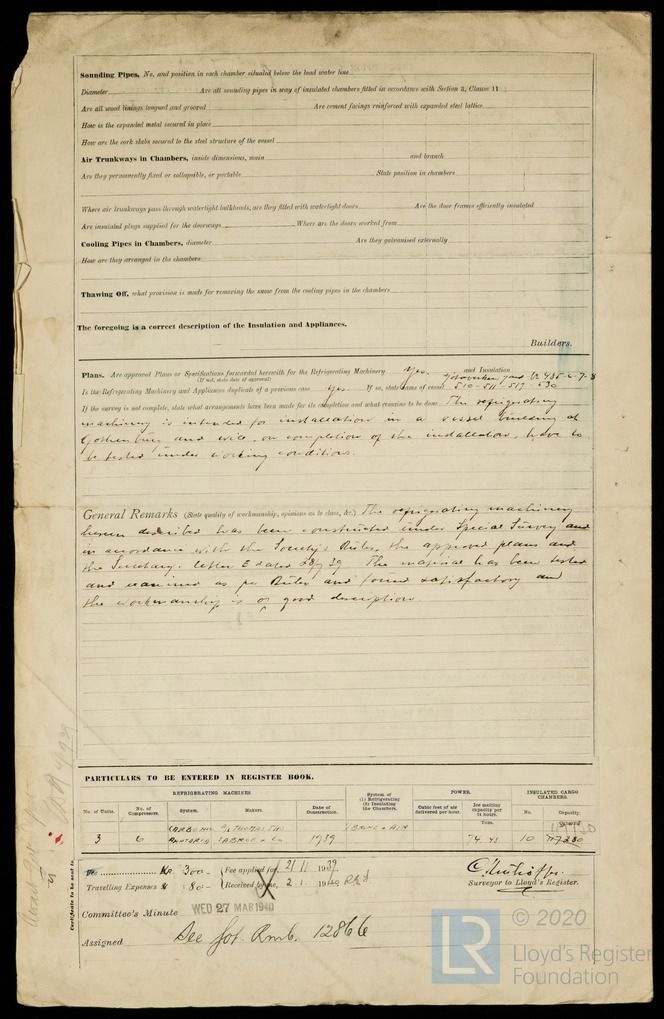 Sounding Pipes, No. and position in each chamber situated below the load water line
Diameter Are all sounding pipes in way of insulated chambers fitted in accordance with Section 3, Clause 11
Are all wood linings tongued and grooved Are cement facings reinforced with expanded steel lattice
How is the expanded metal secured in place
How are the cork slabs secured to the steel structure of the vessel
Air Trunkways in Chambers, inside dimensions, main and branch
Are they permanently fixed or collapsible, or portable State position in chambers
Where air trunkways pass through watertight bulkheads, are they fitted with watertight doors Are the door frames efficiently insulated
Are insulated plugs supplied for the doorways Where are the doors worked from
Cooling Pipes in Chambers, diameter Are they galvanised externally
How are they arranged in the chambers
Thawing Off, what provision is made for removing the snow from the cooling pipes in the chambers
The foregoing is a correct description of the Insulation and Appliances.
Builders.
Plans. Are approved Plans or Specifications forwarded herewith for the Refrigerating Machinery Yes. and Insulation
(If not, state date of approval)
Is the Refrigerating Machinery and Appliances duplicate of a previous case Yes. If so, state name of vessel 510-511-519-530
If the survey is not complete, state what arrangements have been made for its completion and what remains to be done The refrigerating
machinery is intended for installation in a vessel building at
Gothenburg and will, on completion of the installation, have to
be tested under working conditions.
General Remarks (State quality of workmanship, opinions as to class, &c.) The refrigerating machinery
herein described has been constructed under Special Survey and
in accordance with the Society's Rules, the approved plans and
the Secretary's letter E dated 28/7 39. The material has been tested
and examined as per Rules and found satisfactory and
the workmanship is of good description.
PARTICULARS TO BE ENTERED IN REGISTER BOOK.
REFRIGERATING MACHINES.
System of (1) Refrigerating (2) Insulating the Chambers.
POWER.
INSULATED CARGO CHAMBERS.
No. of Units. No. of Compressors. System. Makers. Date of Construction. Cubic feet of air delivered per hour. Ice melting capacity per 24 hours No. Capacity.
Tons.
CARBONIC A/S THOMAS THS BRINE & AIR
3 6 ANHYDRIDE SABROE & Co 1939 74.43 10
Fee Kr. 300- Fee applied for, 21/11 1939
Travelling Expenses Kr 80- Received by me, 2.1 1940
Surveyor to Lloyd's Register.
Committee's Minute WED 27 MAR 1940
Assigned See Got. Rmb. 12866
Certificate to be sent to
© 2020
LR Lloyd's Register
Foundation